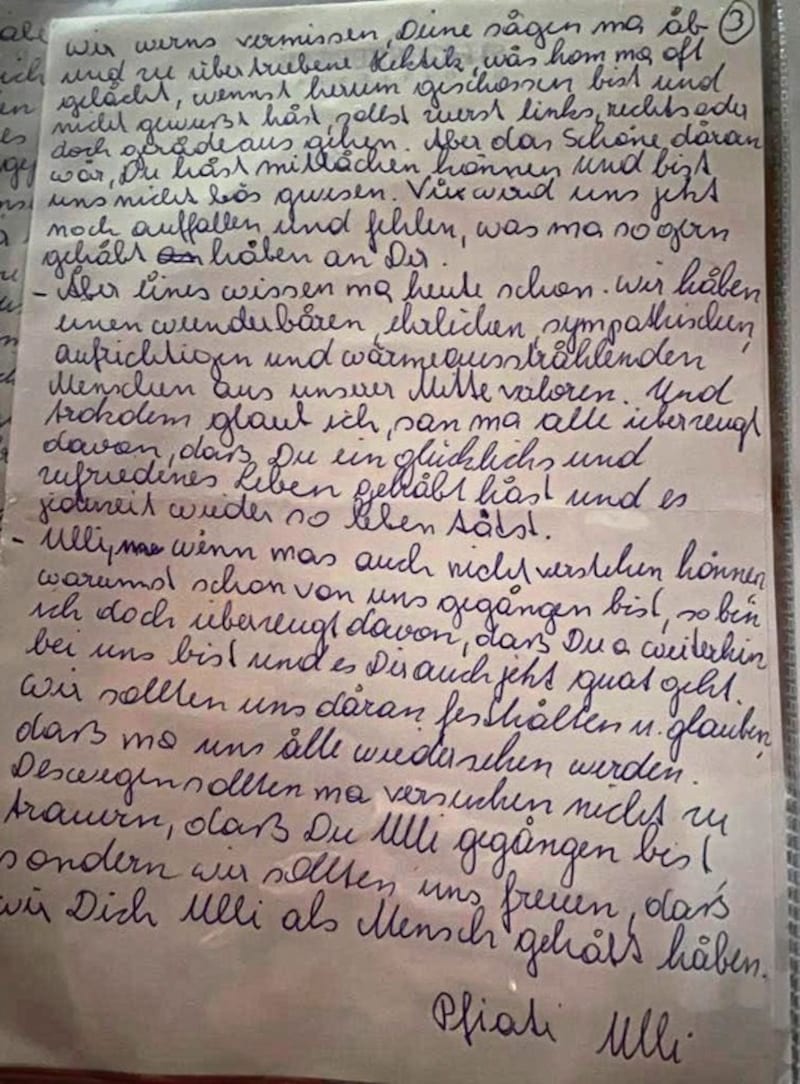 ③
wir werns vermissen, Deine sågen ma åb
und zu übertriebene Hektik, wås hom ma oft
gelåcht, wennst herum geschossen bist und
nicht gewußt håst, sollst zuerst links, rechts oder
doch geråde aus gehen. Aber das Schöne dåran
wår, Du håst mitlåchen können und bist
uns nicht bös gwesen. Vüx wird uns jetzt
noch auffallen und fehlen, was ma so gern
gehåbt håben an Dir.
- Åber eines wissen ma heute schon. Wir håben
einen wunderbåren, ehrlichen, sympathischen,
aufrichtigen und wärmeausstråhlenden
Menschen aus unserer Mitte valoren. Und
trotzdem glaub ich, san ma alle überzeugt
davon, daß Du ein glücklichs und
zufriedenes Leben gehåbt håst und es
jederzeit wieder so leben tätst.
- Ulli, wenn mas auch nicht verstehen können
warumst schon von uns gegången bist, so bin
ich doch überzeugt davon, daß Du a weiterhin
bei uns bist und es Dir auch jetzt guat geht.
Wir sollten uns dåran festhålten u. glauben,
daß ma uns ålle wiedersehen werden.
Deswegen sollten ma versuchen nicht zu
trauern, daß Du Ulli gegången bist,
sondern wir sollten uns freuen, daß
wir Dich Ulli als Mensch gehåbt håben.
Pfiati Ulli